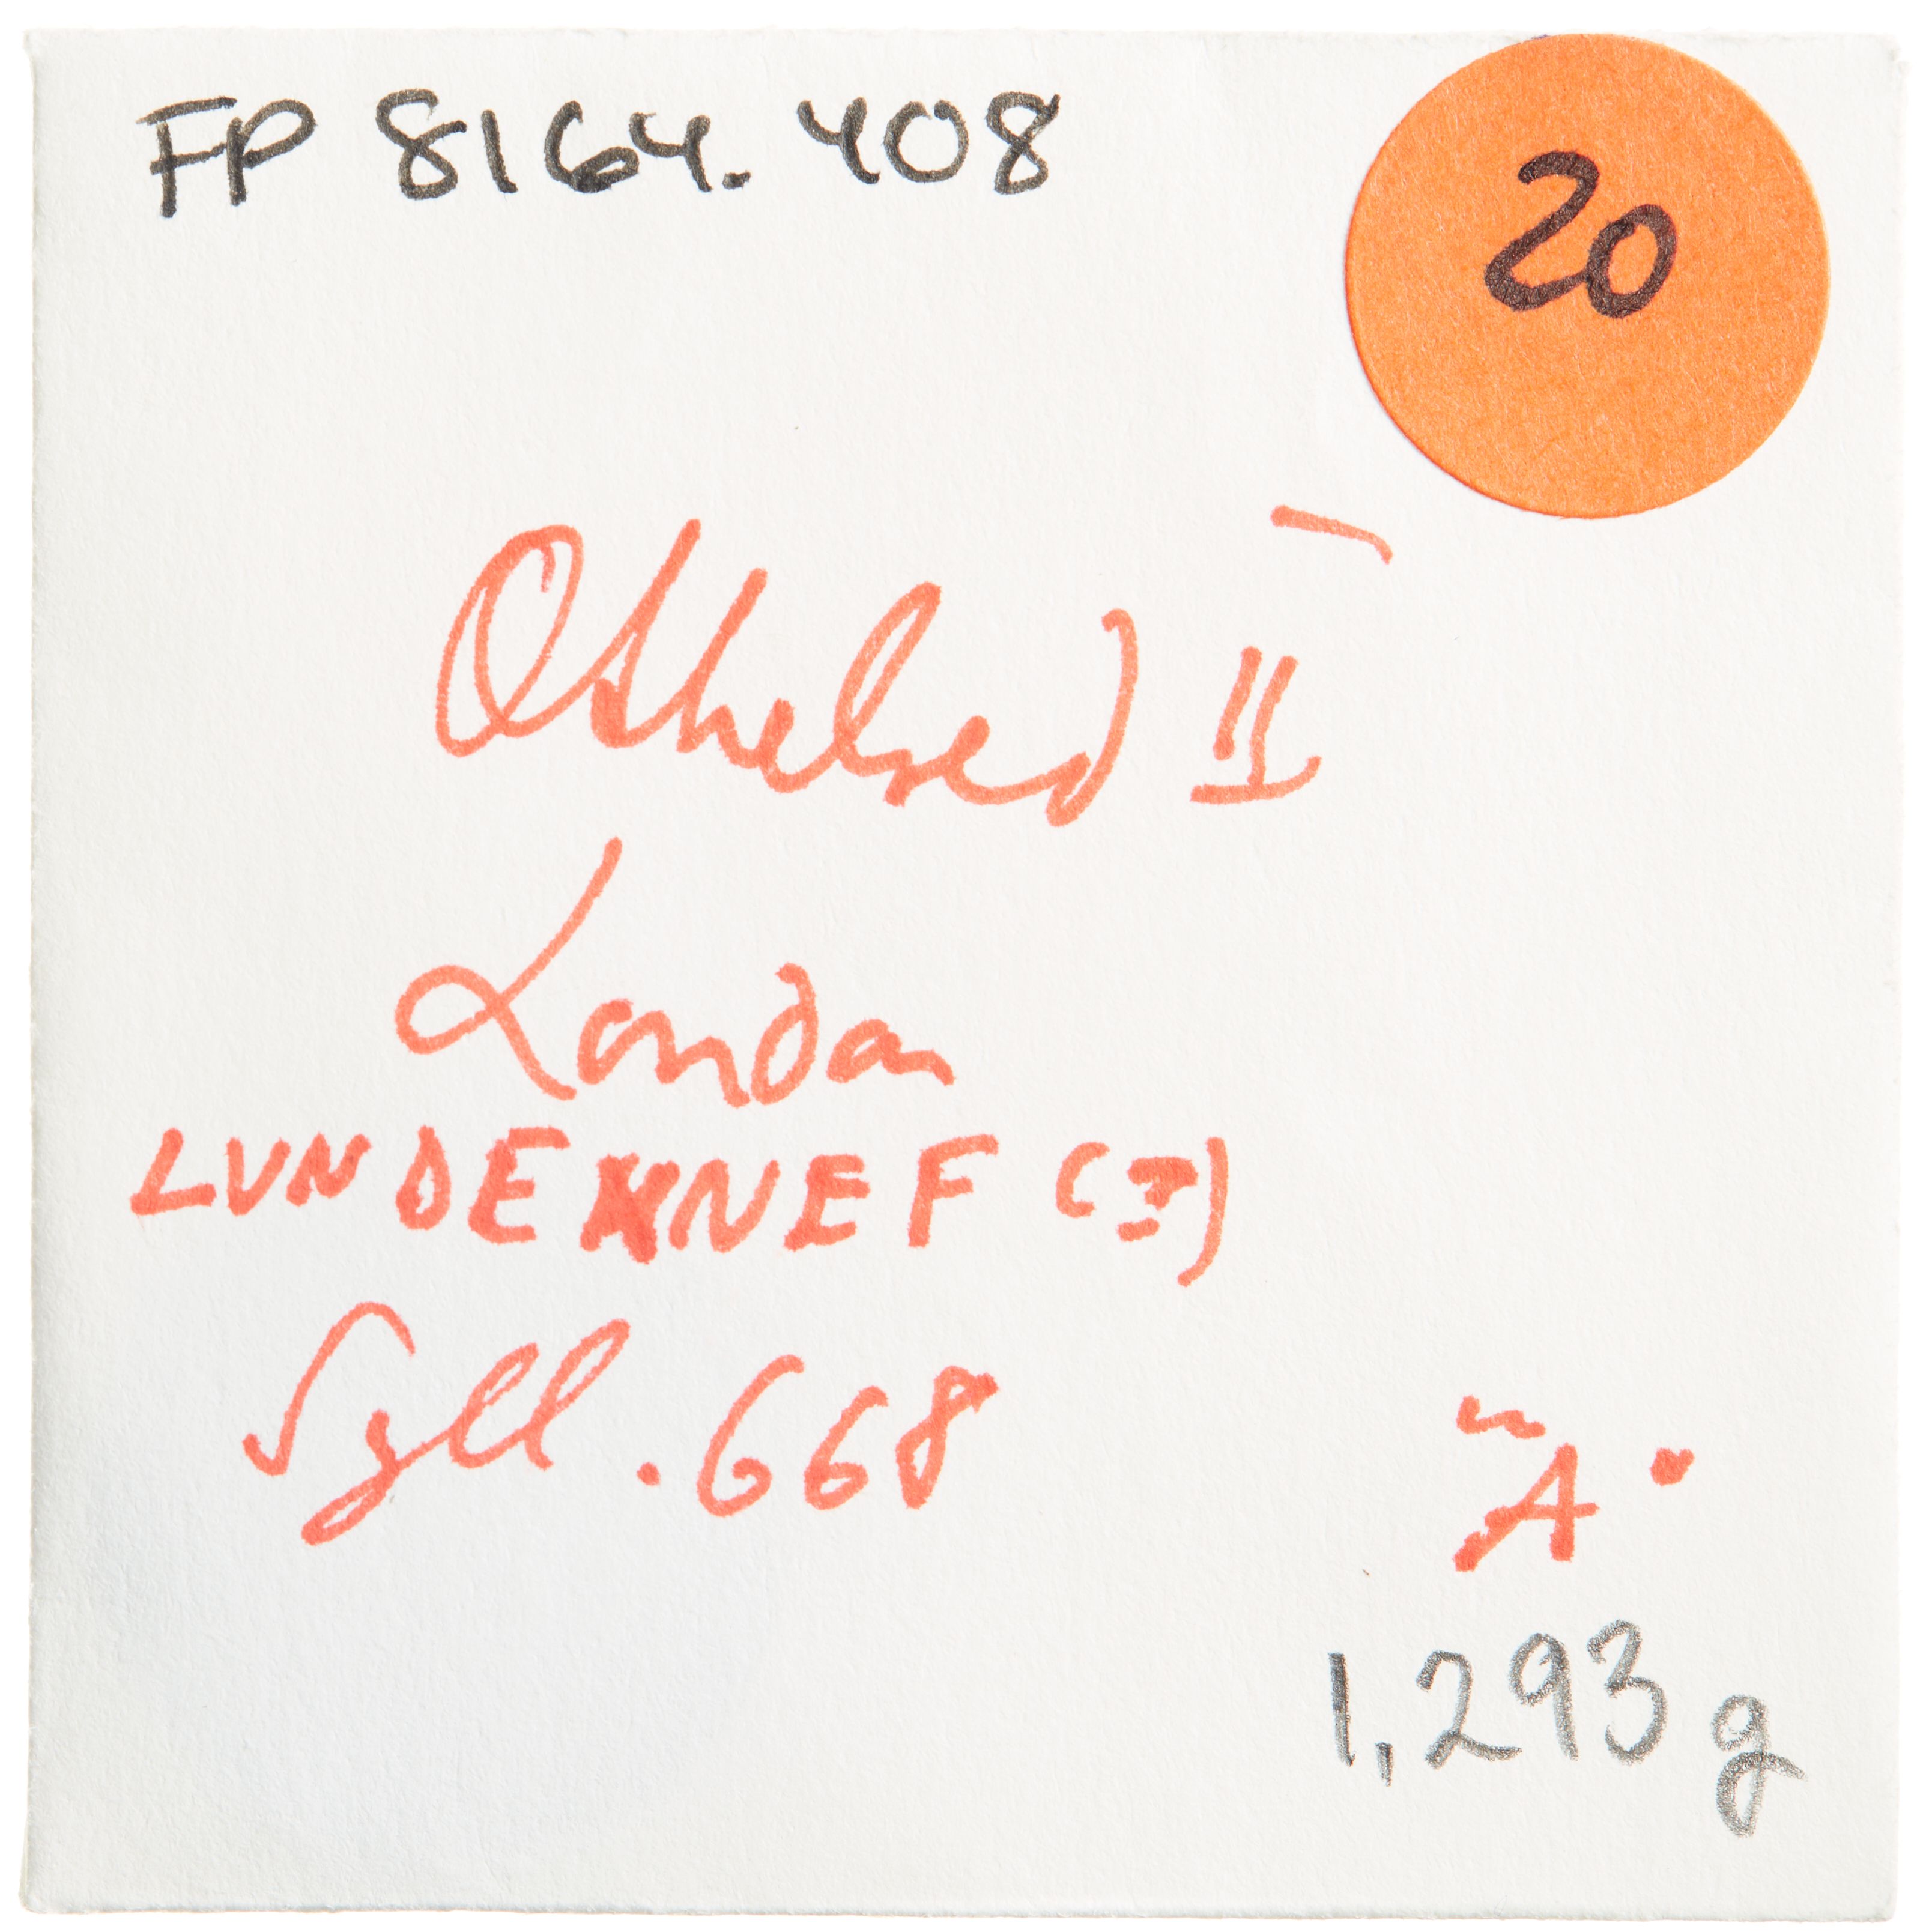 FP 8164.408
20
Othelred II
London
LUNDENNEF (?)
Syll. 668
"A"
1,293 g